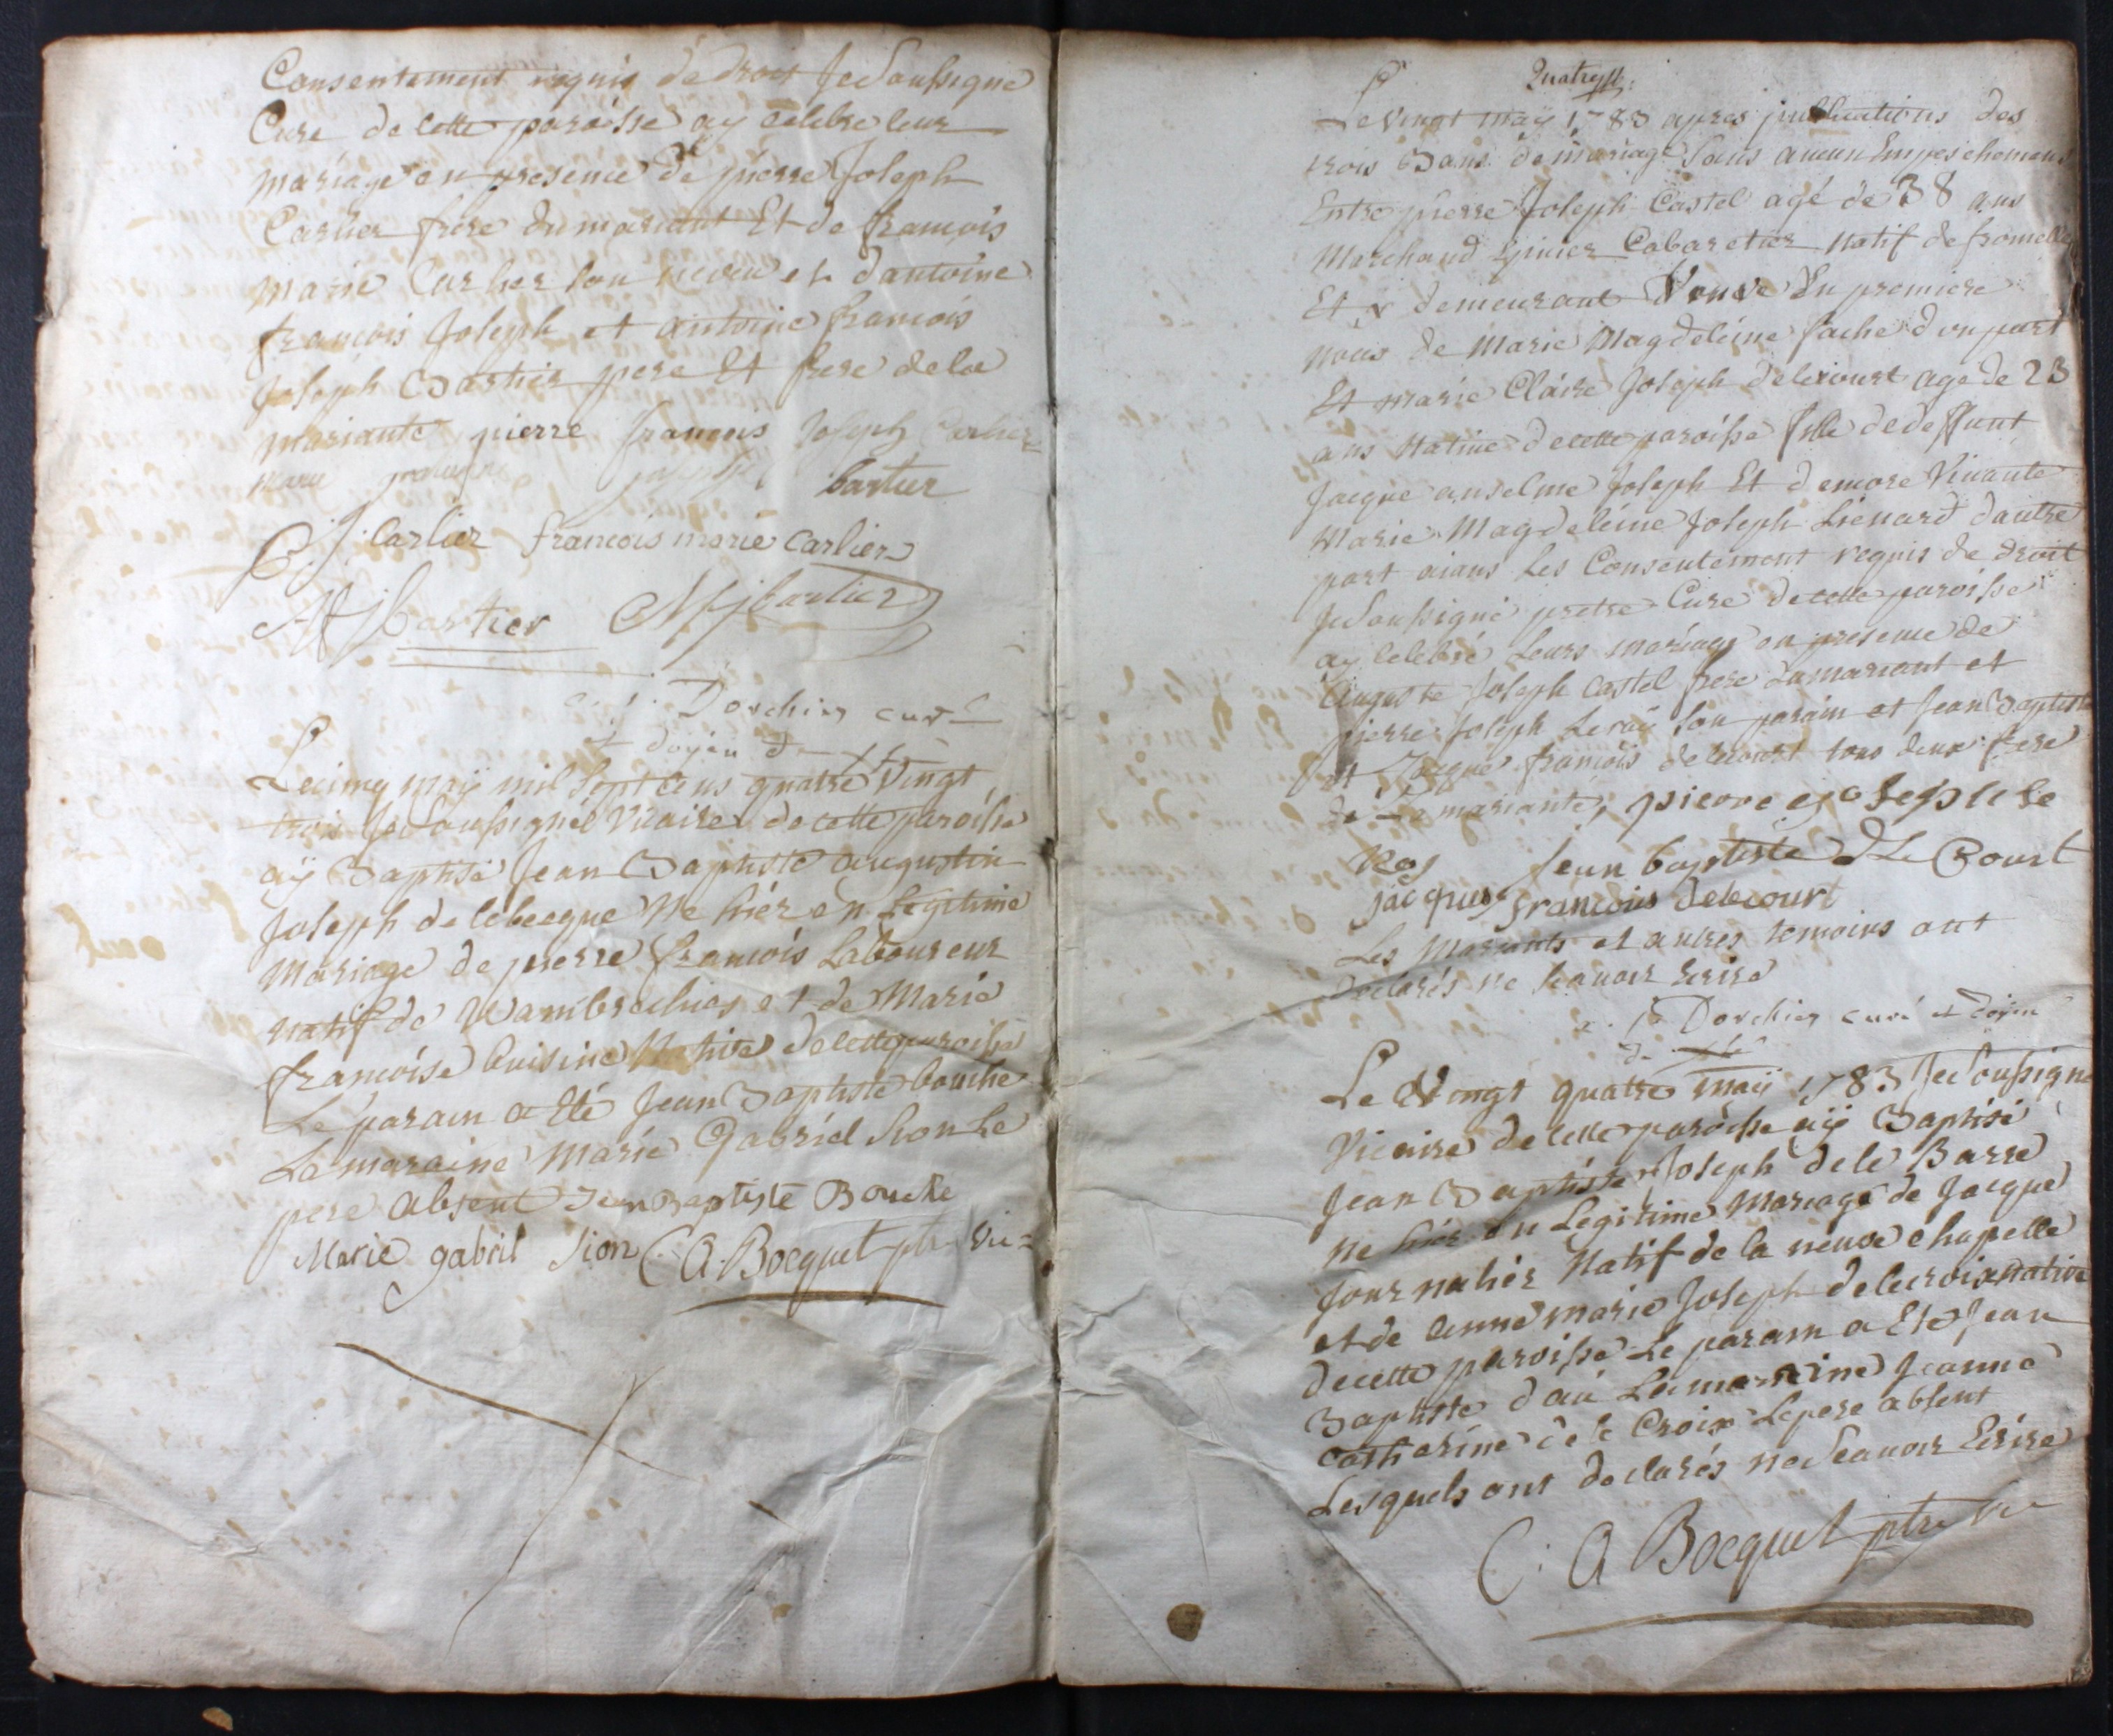 Consentement requis de droit Je Soussigné
Cure de cette paroisse ay celebre leur
mariage en presence de pierre Joseph
Carlier frere du mariant Et de francois
marie Carlier son neveu et dantoine
francois Joseph et antoine francois
Joseph Bartier pere Et frere dela
mariante pierre francois Joseph Carlier
marie joseph bartier
P. J. Carlier francois marie carlier
Bartier
Dorchies curé
et doyen d
Le cinq maÿ mil sept cens quatre Vingt
trois Je Soussigné Vicaire de cette paroisse
aÿ Baptisé Jean Baptiste augustin
Joseph delebecque Né hier en Legitime
Mariage de pierre francois Laboureur
natif de Wambrechies et de Marie
francoise buisine Native de cette paroisse
Le parain a Eté Jean Baptiste bouche
La maraine Marie Gabriel Sion Le
pere absent Jean Baptiste Bouche
Marie gabril Sion C. A. Bocquet ptre Vic=
Quatre
Le vingt maÿ 1783 apres publications des
trois Bans de mariage Sans aucun Empeschemens
Entre pierre Joseph Castel agé de 38 ans
Marchand Epicier Cabaretier Natif de fromelle
Et y demeurant Veuve En premiere
noces de Marie Magdeleine fache d'un part
Et marie Claire Joseph delecourt age de 23
ans Native de cette paroisse fille de deffunt
Jacque anselme Joseph Et d'encore Vivante
Marie Magdeleine Joseph Lienard dautre
part aians Les Consentement requis de droit
Je Soussigné pretre Cure de cette paroisse
ay celebré Leurs mariage en presence de
auguste Joseph castel frere du mariant et
pierre Joseph Leroÿ son parain et Jean Baptiste
et Jacque francois delecourt tous deux frere
de La mariante, pierre joseph le
Roy Jean baptiste De Le Court
jacques francois delecourt
Les Mariants et autres temoins ont
declarés ne scavoir Ecrire
Dorchies curé et doyen
d
Le Vingt quatre maÿ 1783 Je Soussigné
Vicaire de cette paroisse aÿ Baptisé
Jean Baptiste Joseph dele Barre
Né hier en Legitime Mariage de Jacque
Journalier Natif de la neuve chapelle
et de anne marie Joseph delecroix native
de cette paroisse Le parain a Eté Jean
Baptiste d'aü La maraine Jeanne
catherine dele Croix Le pere absent
Lesquels ont declarés ne Scavoir Ecrire
C: A Bocquet ptre Vic